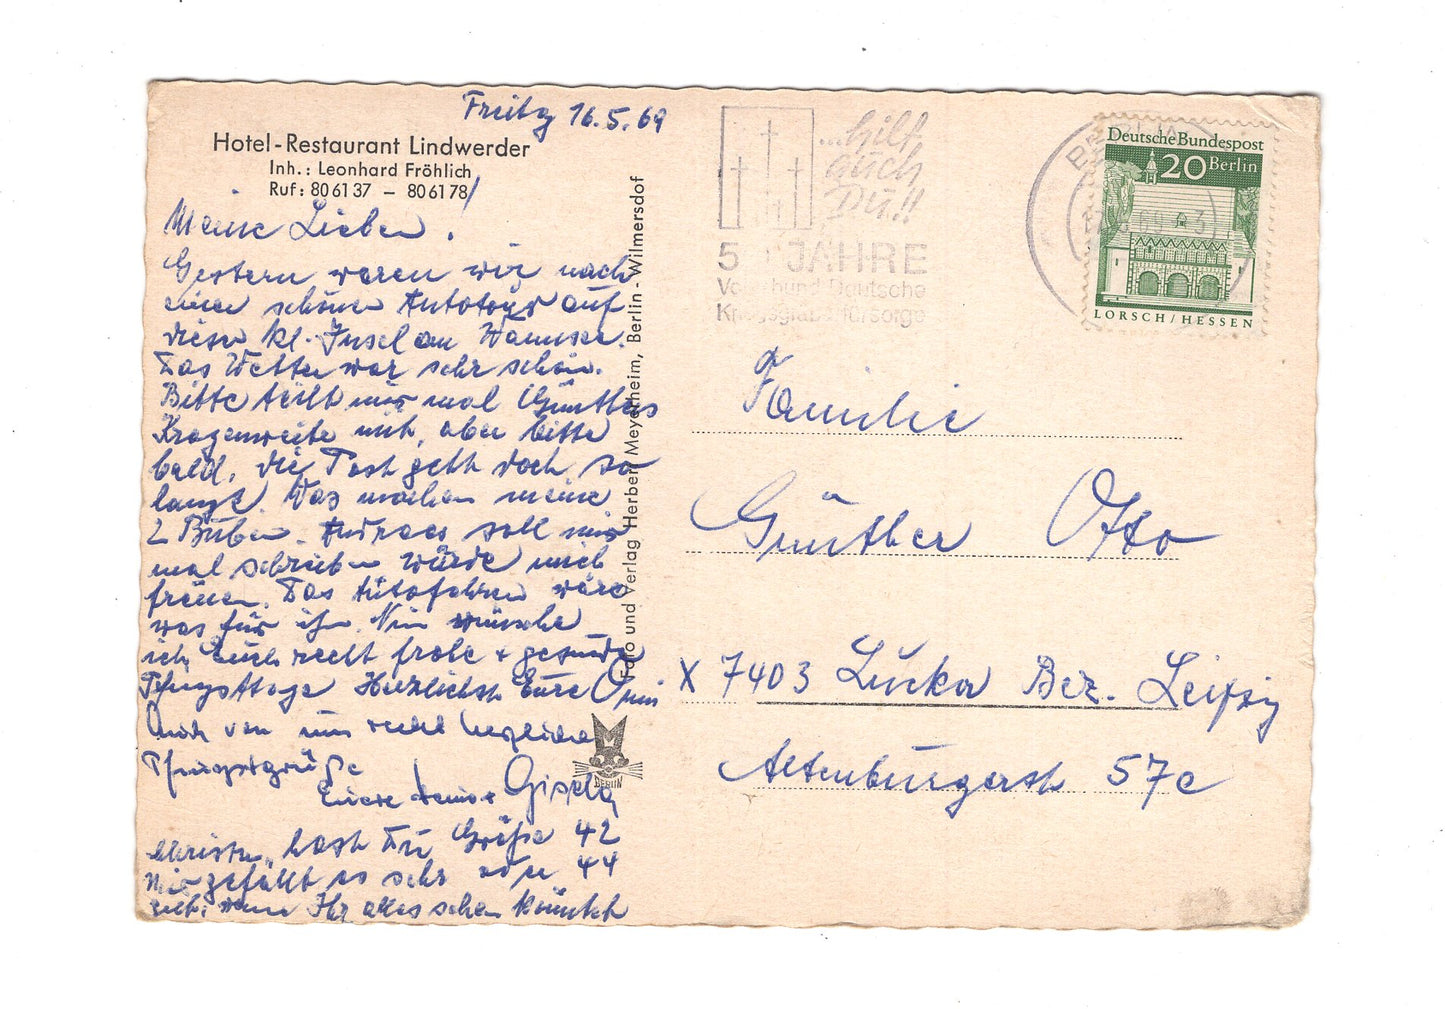 Freitg 16.5.69
Hotel-Restaurant Lindwerder
Inh.: Leonhard Fröhlich
Ruf: 80 61 37 – 80 61 78
Meine Lieben!
Gestern waren wir nach
einer schönen Autotour auf
dieser kl. Insel am Wannsee.
Das Wetter war sehr schön.
Bitte teilt mir mal Günthers
Kragenweite mit, aber bitte
bald, die Post geht doch so
lange. Was machen meine
2 Buben. Andreas soll mir
mal schreiben würde mich
freuen. Das Autofahren wäre
was für ihn. Nun wünsche
ich Euch recht frohe + gesunde
Pfingsttage Herzlichst Eure Omi
Auch von uns recht herzliche
Pfingstgrüße
Eure + Gisela
Christa, hast Du Größe 42
oder 44
Mir gefällt es sehr
wenn Ihr alles sehen könntet
Foto und Verlag Herbert Meyerheim, Berlin - Wilmersdorf
BERLIN
...hilf
auch
Du!!
50 JAHRE
Volksbund Deutsche
Kriegsgräberfürsorge
BERLIN
Deutsche Bundespost
20 Berlin
LORSCH/HESSEN
Familie
Günther Otto
X 7403 Lucka Bez. Leipzig
Altenburgerstr 57c